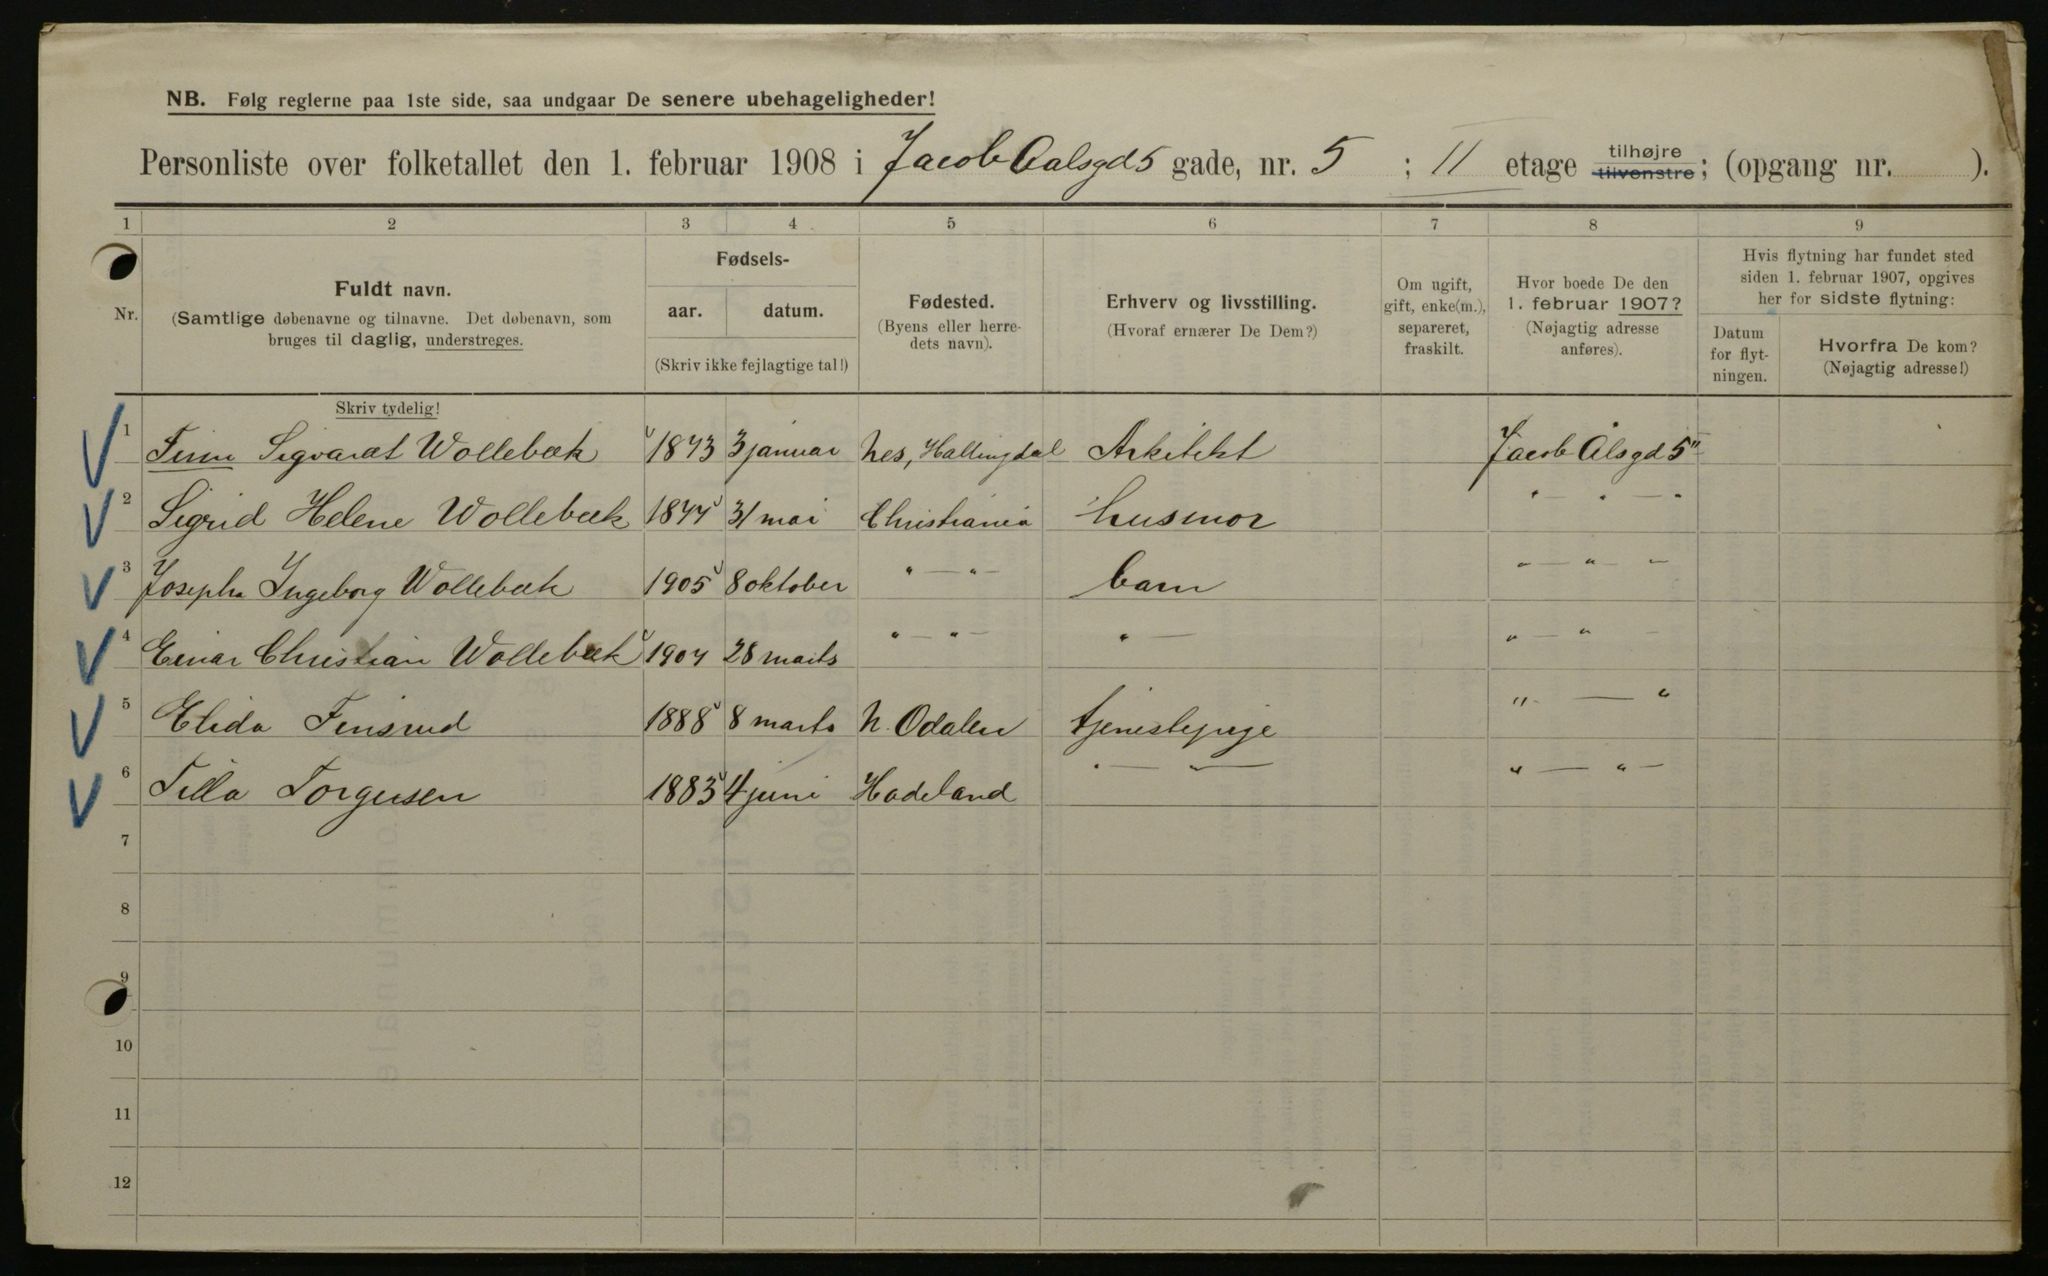 NB. Følg reglerne paa 1ste side, saa undgaar De senere ubehageligheder!
Personliste over folketallet den 1. februar 1908 i Jacob Aalsgd 5 gade, nr. 5 ; II etage tilhøjre tilvenstre; (opgang nr. ).
1 2 3 4 5 6 7 8 9
Nr.
Fuldt navn.
(Samtlige døbenavne og tilnavne. Det døbenavn, som
bruges til daglig, understreges.
Fødsels-
aar. datum.
(Skriv ikke fejlagtige tal!)
Fødested.
(Byens eller herre-
dets navn).
Erhverv og livsstilling.
(Hvoraf ernærer De Dem?)
Om ugift,
gift, enke(m.),
separeret,
fraskilt.
Hvor boede De den
1. februar 1907?
(Nøjagtig adresse
anføres).
Hvis flytning har fundet sted
siden 1. februar 1907, opgives
her for sidste flytning:
Datum
for flyt-
ningen.
Hvorfra De kom?
(Nøjagtig adresse!)
Skriv tydelig!
1 Finn Sigvardt Wollebæk 1873 3 januar Nes, Hallingdal Arkitekt Jacob Ålsgd 5 II
2 Sigrid Helene Wollebæk 1877 31 mai Christiania husmor " — " — "
3 Josepha Ingeborg Wollebæk 1905 8 oktober " — " — barn " — " —
4 Einar Christian Wollebæk 1907 28 marts " — " — " — " — " —
5 Elida Finsrud 1888 8 marts N. Odalen tjenestepige " — "
6 Tilla Torgersen 1883 4 juni Hadeland " — " — " — " —
7
8
9
10
11
12